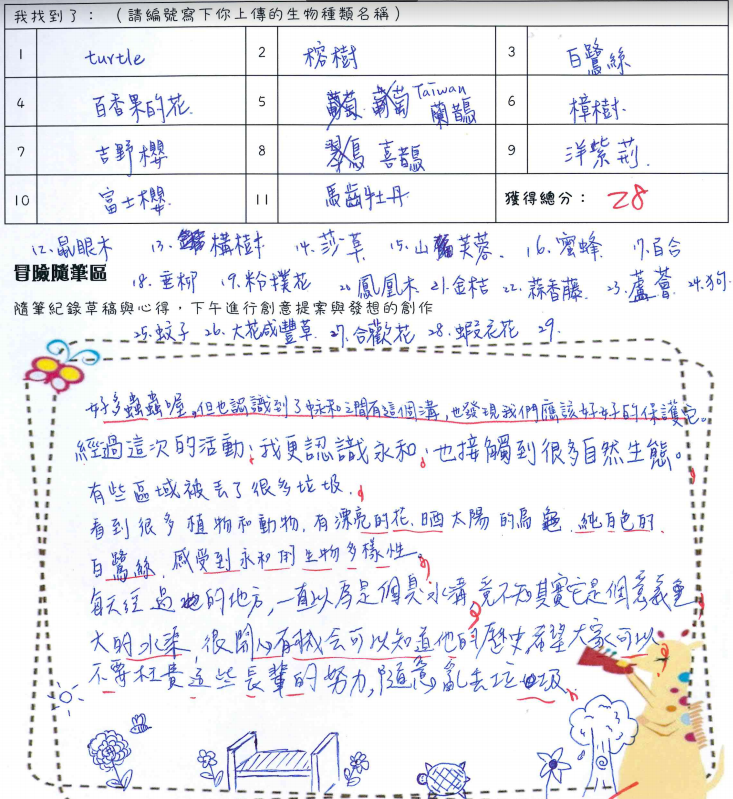 我找到了：（請編號寫下你上傳的生物種類名稱）
1 turtle 2 榕樹 3 白鷺絲
4 百香果的花 5 Taiwan 藍鵲 6 樟樹
7 吉野櫻 8 喜鵲 9 洋紫荊
10 富士櫻 11 馬齒牡丹 獲得總分：28
12.鼠眼木 13.構樹 14.莎草 15.山芙蓉 16.蜜蜂 17.百合
冒險隨筆區
18.垂柳 19.粉撲花 20.鳳凰木 21.金桔 22.蒜香藤 23.蘆薈 24.狗
隨筆紀錄草稿與心得，下午進行創意提案與發想的創作
25.蚊子 26.大花咸豐草 27.合歡花 28.蝦衣花 29.
好多蟲蟲喔，但也認識到了中永和之間有這個溝，也發現我們應該好好的保護它。
經過這次的活動；我更認識永和；也接觸到很多自然生態。
有些區域被丟了很多垃圾。
看到很多植物和動物，有漂亮的花、晒太陽的烏龜、純白色的
白鷺絲，感受到永和的生物多樣性。
每天經過的地方，一直以為是個臭水溝，竟不知其實它是個意義重
大的水渠，很開心有機會可以知道他的歷史希望大家可以
不要枉費這些長輩的努力，隨意亂丟垃圾